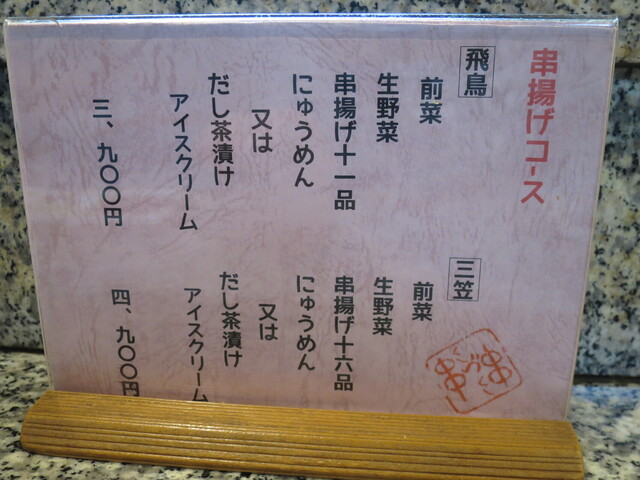 串揚げコース
飛鳥
前菜
生野菜
串揚げ十一品
にゅうめん
又は
だし茶漬け
アイスクリーム
三、九〇〇円
三笠
前菜
生野菜
串揚げ十六品
にゅうめん
又は
だし茶漬け
アイスクリーム
四、九〇〇円